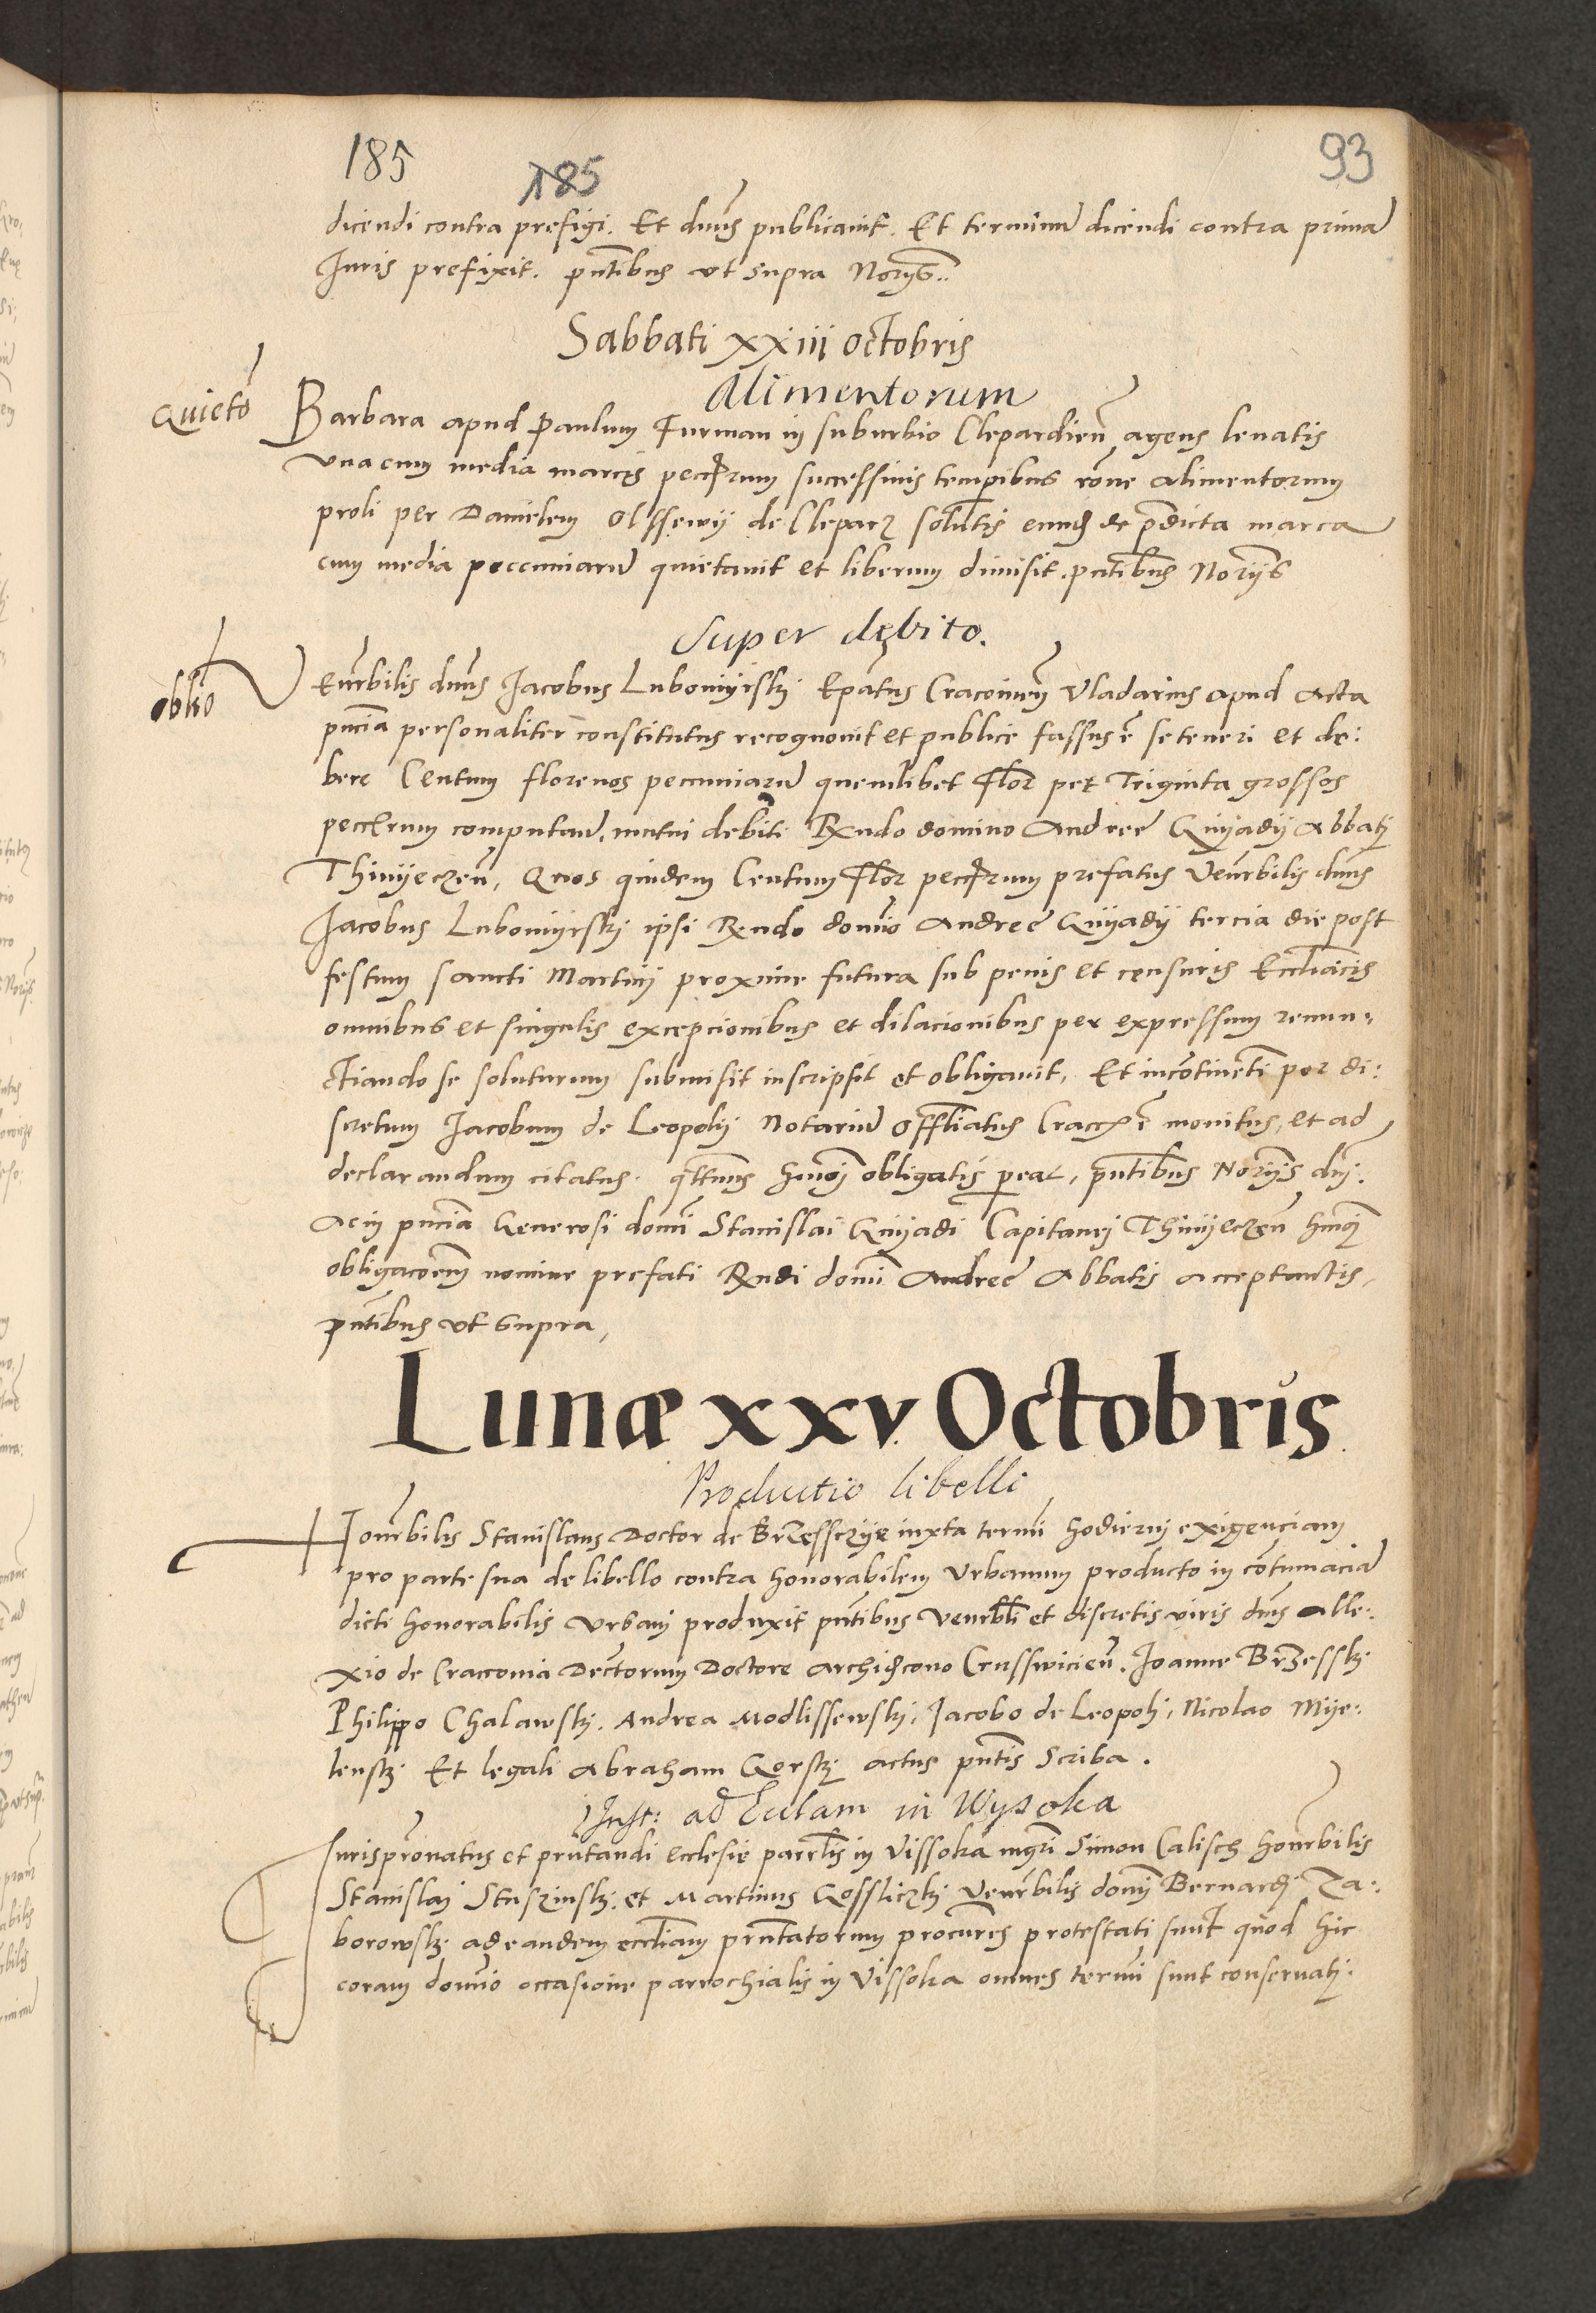 185
185
93
dicendi contra prefigi. Et dnus publicavit. Et terminu dicendi contra prima
Juris prefixit. pntibus ut supra Norijs..
Sabbati xxiii octobris
Alimentorum
Quieto
Barbara apud Paulum Furman in suburbio Clepardien agens levatis
una cum media marcis peccrum successivis temporibus rone alimentorum
proli per Danielem Olssewij de Cleparz solutis eund de pdicta marca
cum media peccuniaru quietavit et liberum dimisit. pntibus Norijs
Super debito.
oblio
Venrbilis dnus Jacobus Lubomijrskj Epatus Cracovien Vladarius apud Acta
pncia personaliter constitutus recognovit et publice fassus e se teneri et de:
bere Centum florenos pecuniaru quemlibet Flor per Triginta grossos
peccrum computan, mutui debiti Rndo domino Andree Gnyadij Abbatj
Thinijeczen, Quos quidem Centum Flor peccrum prefatus Venrbilis dnus
Jacobus Lubomijrskj ipsi Rndo domino Andree Gnyadij tercia die post
festum sancti Martinj proxime futura sub penis et censuris Ecclacis
omnibus et singulis excepcionibus et dilacionibus per expressum renun-
ctiando se soluturum submisit inscripsit et obligavit, Et incontinenti per di:
scretum Jacobum de Leopolij Notariu Offliatus Cracc e monitus, et ad
declarandum citatus. obligatis pntibus Norijs
Ac in pncia Generosi domi Stanislai Gnyadi Capitanej Thinijeczen hmoi
obligacoem nomine prefati Rndi domi Andree Abbatis acceptantis,
pntibus ut supra,
Lunæ xxv. Octobris.
Productio libelli
Honrbilis Stanislaus Doctor de Brzessczije iuxta termi hodiernj exigenciam
pro parte sua de libello contra honorabilem Urbanum producto in contumacia
dicti honorabilis Urbanj produxit pntibus Venrbli et discretis viris dnis Alle:
xio de Cracovia Dectorum Doctore Archidicono Crusswicien. Joanne Brzesskj.
Philippo Chalawskj. Andrea Modlissewskj. Jacobo de Leopolj, Nicolao Mije:
lenskj Et legali Abraham Gorskj actus pntis Scriba.
Inst: ad Eccl[esi]am in Wysoka
Jurispronatus et prntandi Ecclesie parrlis in Vissoka mgri Simon Calisch honrbilis
Stanislaj Stuszinskj. et Martinus Gosslickj Venrbilis domj Bernardj Za:
borowskj ad eandem ecclam prntatorum procures protestati sunt quod hic
coram domino occasione parrochialis in Vissoka omnes termi sunt conservatj.